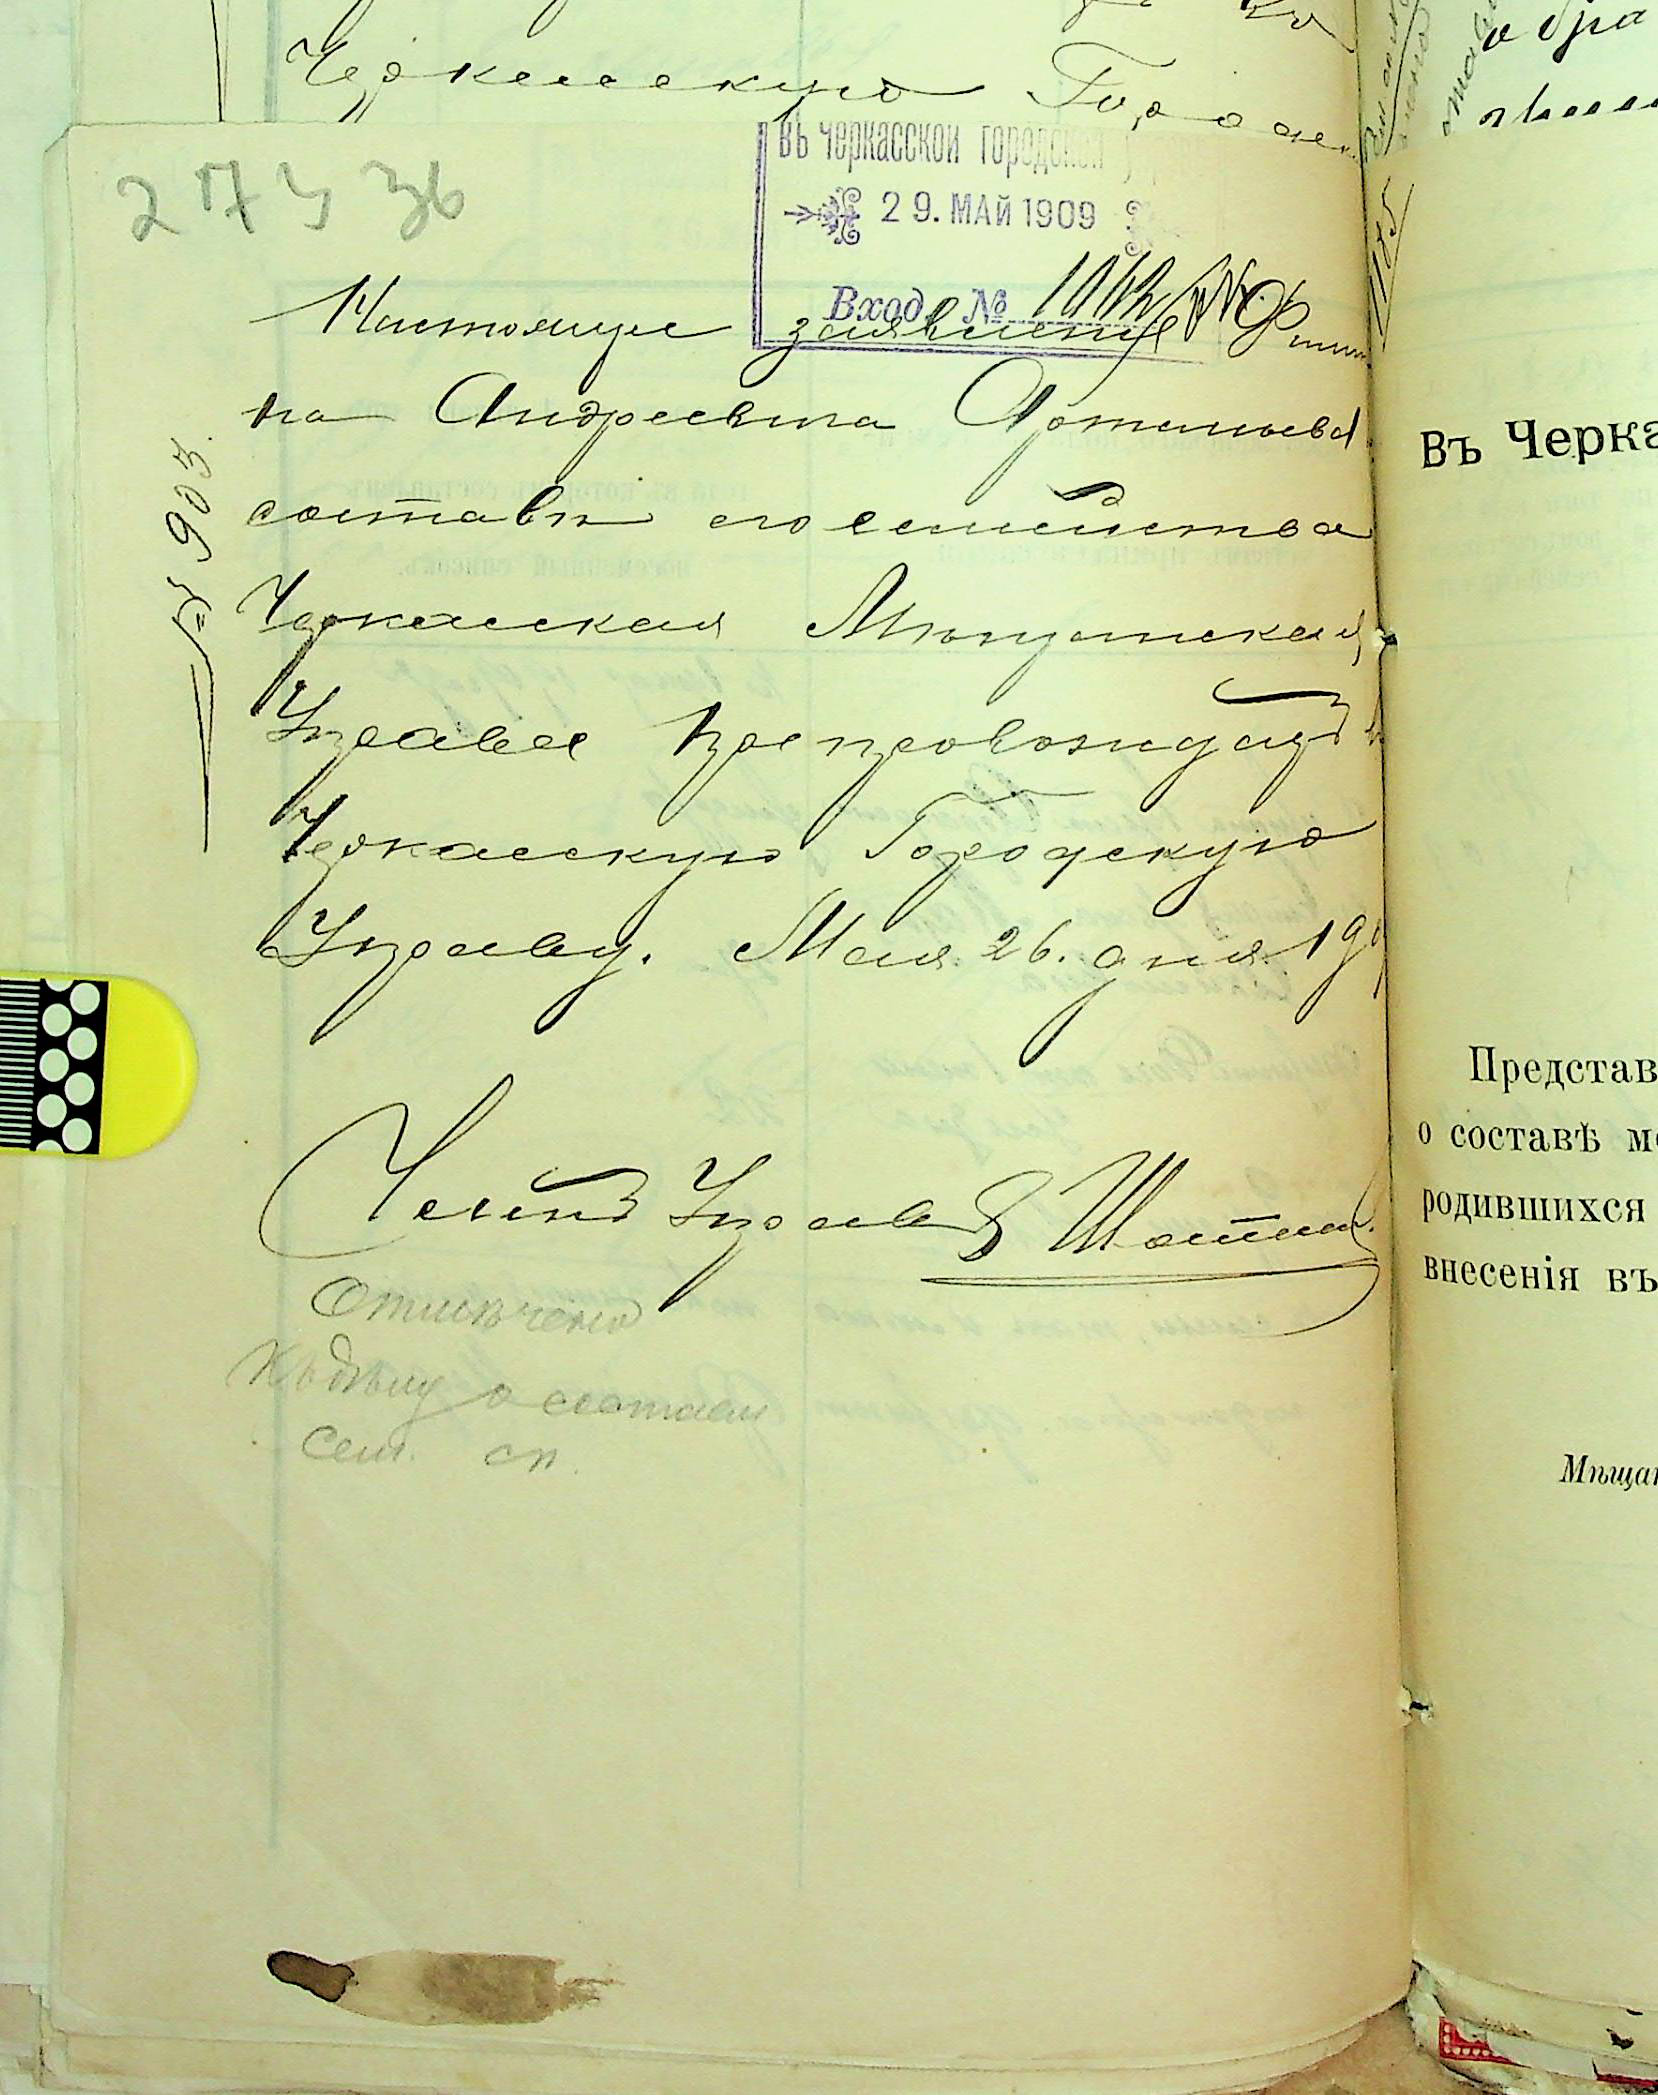 Черкасскую Городск
27436
въ черкасской городской управ
29. МАЙ 1909
Вход. №
Настоящее заявленіе
на Андреевича Артемьева
составѣ его семейства
Черкасская Мѣщанская
Управа препровождаетъ въ
Черкасскую Городскую
Управу. Мая 26. дня 190
№ 903.
Членъ Управы
Отмѣчено
Къ дѣлу о составл
сем. сп.
обра
1185
Въ Черка
Представ
о составѣ м
родившихся
внесенія въ
Мѣщан